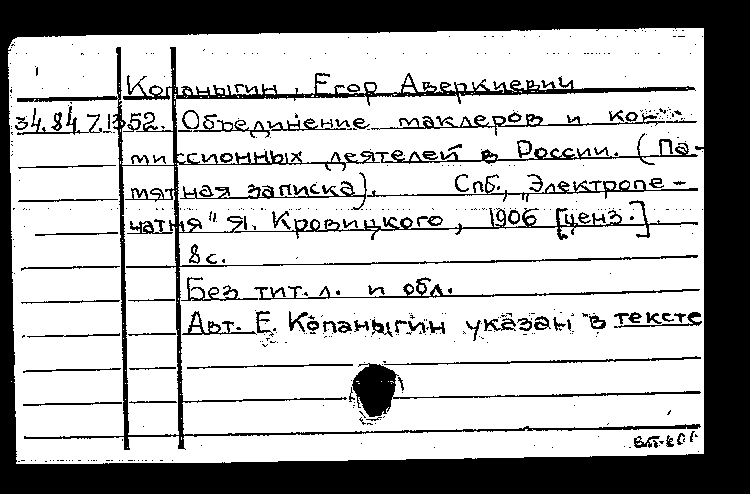 Копаныгин, Егор Аверкиевич
34.84.7.1352. Объединение маклеров и ко-
миссионных деятелей в России. (Па-
мятная записка). Спб., „Электропе-
чатня" Я. Кровицкого, 1906 [ценз.].
8 с.
Без тит. л. и обл.
Авт. Е. Копаныгин указан в тексте